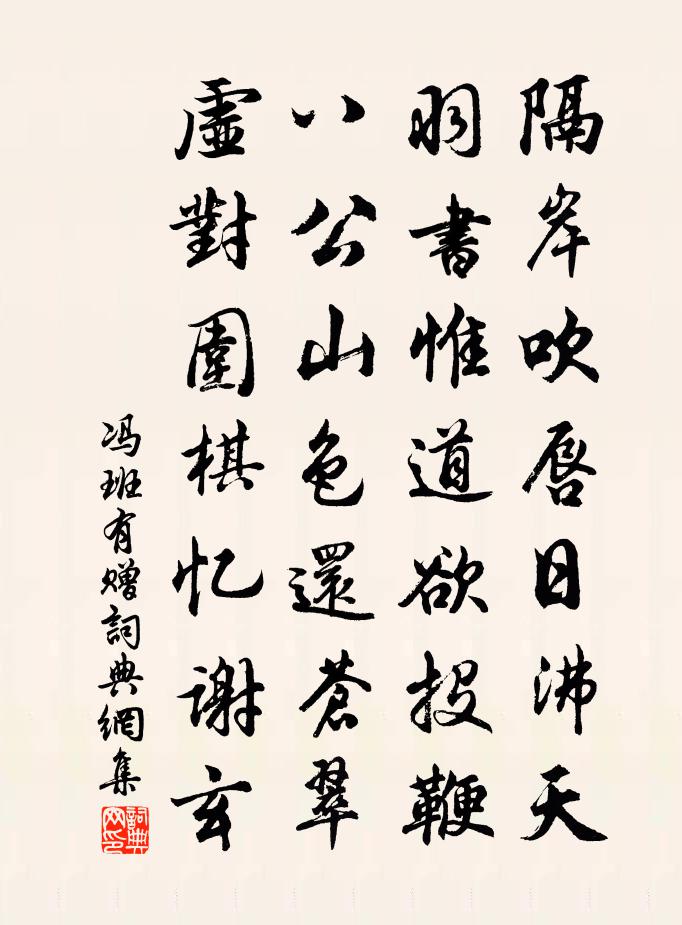 隔岸吹唇日沸天
羽書惟道欲投鞭
八公山色還蒼翠
虛對圍棋忆谢玄
冯班有赠詞典網集
詞典网印